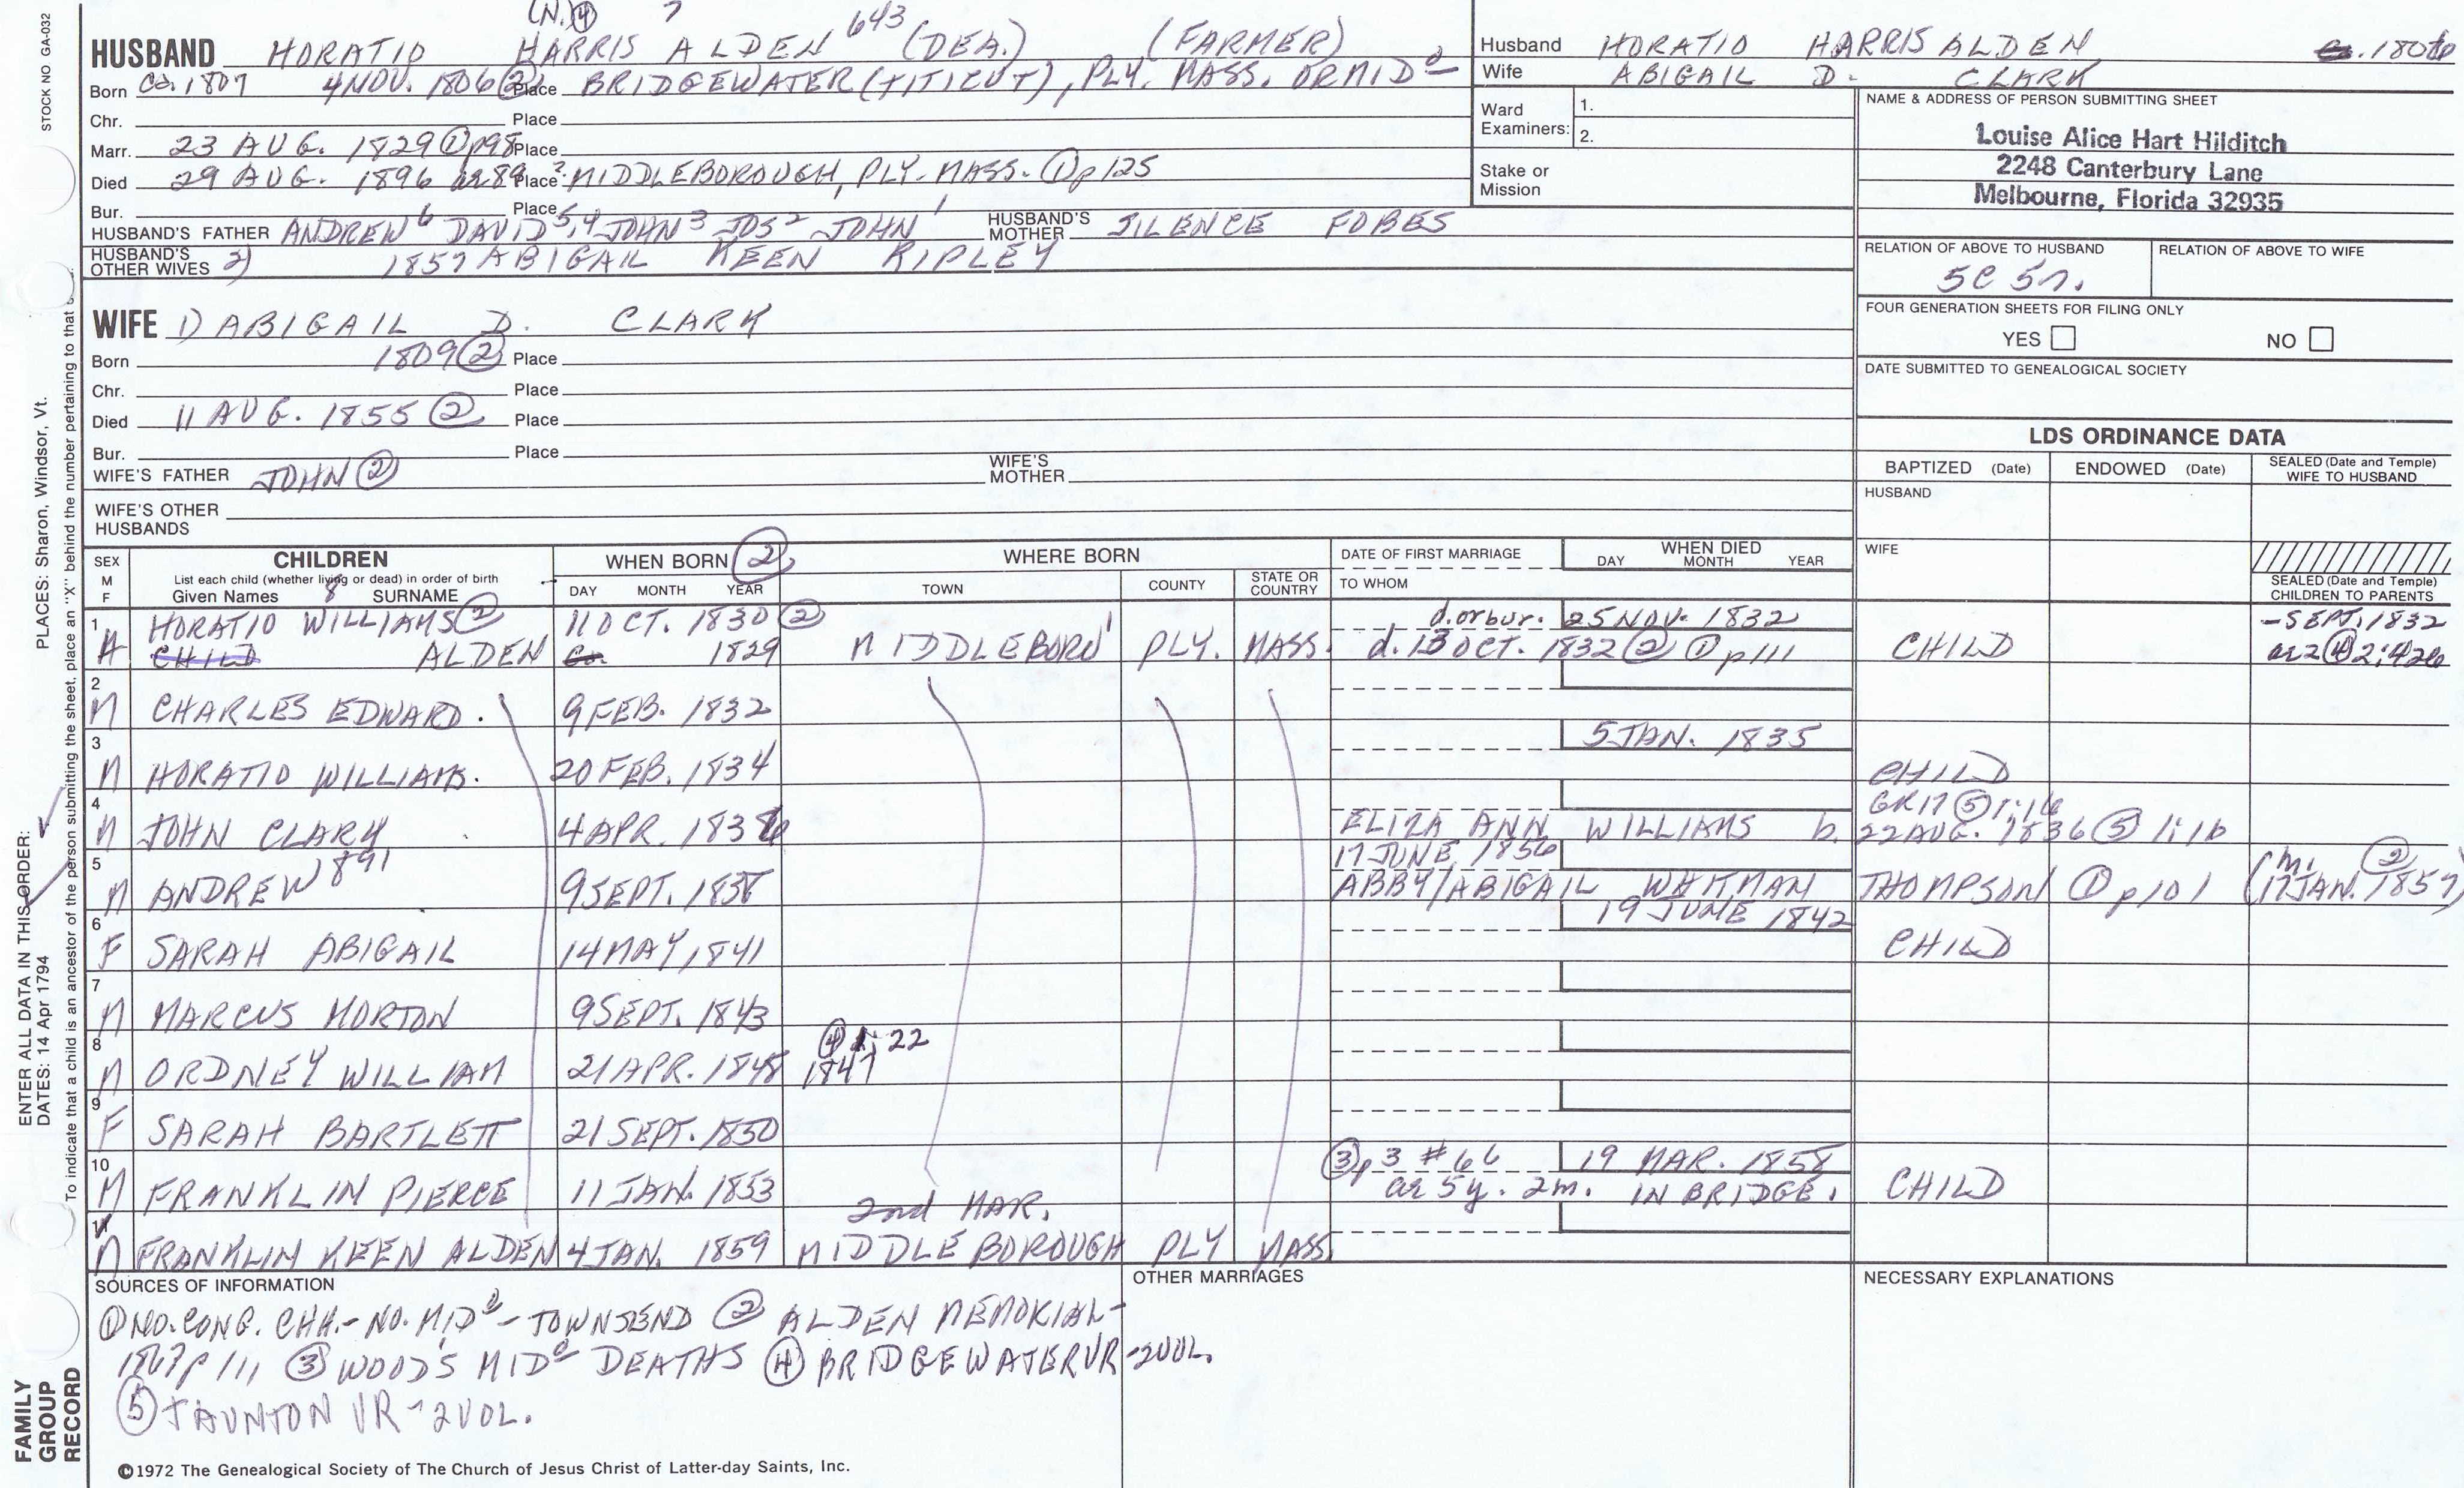 STOCK NO GA-032
(N.) ④ 7
HUSBAND HORATIO HARRIS ALDEN 643 (DEA.) (FARMER)
Born Ca. 1807 4 NOV. 1806 ② Place BRIDGEWATER (TITICUT), PLY. MASS. OR MIDᵒ
Chr. Place
Marr. 23 AUG. 1829 ① p98 Place
Died 29 AUG. 1896 ae 89 Place ? MIDDLEBOROUGH, PLY. MASS. ① p125
Bur. Place
HUSBAND'S FATHER ANDREW⁶ DAVID⁵,⁴ JOHN³ JOS² JOHN¹ HUSBAND'S MOTHER SILENCE FOBES
HUSBAND'S OTHER WIVES 2) 1857 ABIGAIL KEEN RIPLEY
WIFE 1) ABIGAIL D. CLARK
Born 1809 ② Place
Chr. Place
Died 11 AUG. 1855 ② Place
Bur. Place
WIFE'S FATHER JOHN ② WIFE'S MOTHER
WIFE'S OTHER HUSBANDS
Husband HORATIO HARRIS ALDEN Ca. 1806
Wife ABIGAIL D. CLARK
Ward Examiners: 1.
2.
Stake or Mission
NAME & ADDRESS OF PERSON SUBMITTING SHEET
Louise Alice Hart Hilditch
2248 Canterbury Lane
Melbourne, Florida 32935
RELATION OF ABOVE TO HUSBAND RELATION OF ABOVE TO WIFE
5C 5r.
FOUR GENERATION SHEETS FOR FILING ONLY
YES NO
DATE SUBMITTED TO GENEALOGICAL SOCIETY
LDS ORDINANCE DATA
BAPTIZED (Date) ENDOWED (Date) SEALED (Date and Temple) WIFE TO HUSBAND
HUSBAND
WIFE
SEALED (Date and Temple) CHILDREN TO PARENTS
SEX M F CHILDREN WHEN BORN ② WHERE BORN DATE OF FIRST MARRIAGE WHEN DIED
List each child (whether living or dead) in order of birth
Given Names 8 SURNAME DAY MONTH YEAR TOWN COUNTY STATE OR COUNTRY TO WHOM DAY MONTH YEAR
1 HORATIO WILLIAMS ② 11 OCT. 1830 ② d. or bur. 25 NOV. 1832 - SEPT. 1832
M CHILD ALDEN Ca. 1829 MIDDLEBORO' PLY. MASS. d. 13 OCT. 1832 ② ① p111 CHILD ae 2 ④ 2:426
2 M CHARLES EDWARD. 9 FEB. 1832
3 5 JAN. 1835
M HORATIO WILLIAMS. 20 FEB. 1834 CHILD
4 GR17 ⑤ 1:16
M JOHN CLARK 4 APR. 1836 ELIZA ANN WILLIAMS b. 22 AUG. 1836 ⑤ 1:16
5 17 JUNE 1856
M ANDREW 891 9 SEPT. 1838 ABBY/ABIGAIL WHITMAN THOMPSON ① p101 (m. 17 JAN. 1857 ②
6 19 JUNE 1842
F SARAH ABIGAIL 14 MAY, 1841 CHILD
7 M MARCUS MORTON 9 SEPT. 1843
8 ④ 1:22
M ORDNEY WILLIAM 21 APR. 1848 1847
9 F SARAH BARTLETT 21 SEPT. 1850
10 ③ p3 #66 19 MAR. 1858
M FRANKLIN PIERCE 11 JAN. 1853 ae 5y. 2m. IN BRIDGE. CHILD
2nd MAR.
11 M FRANKLIN KEEN ALDEN 4 JAN. 1859 MIDDLEBOROUGH PLY MASS.
SOURCES OF INFORMATION OTHER MARRIAGES NECESSARY EXPLANATIONS
① NO. CONG. CHH. - NO. MIDᵒ - TOWNSEND ② ALDEN MEMORIAL-
1867 p 111 ③ WOOD'S MIDᵒ DEATHS ④ BRIDGEWATER VR - 2VOL.
⑤ TAUNTON VR - 2VOL.
©1972 The Genealogical Society of The Church of Jesus Christ of Latter-day Saints, Inc.
FAMILY GROUP RECORD
ENTER ALL DATA IN THIS ORDER:
DATES: 14 Apr 1794
PLACES: Sharon, Windsor, Vt.
To indicate that a child is an ancestor of the person submitting the sheet, place an "X" behind the number pertaining to that